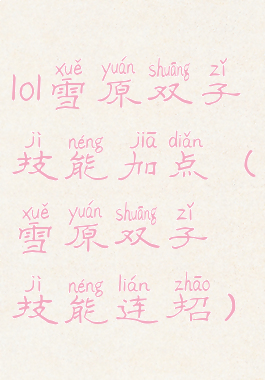 xuě yuán shuāng zǐ
lol雪原双子
jì néng jiā diǎn
技能加点（
xuě yuán shuāng zǐ
雪原双子
jì néng lián zhāo
技能连招）